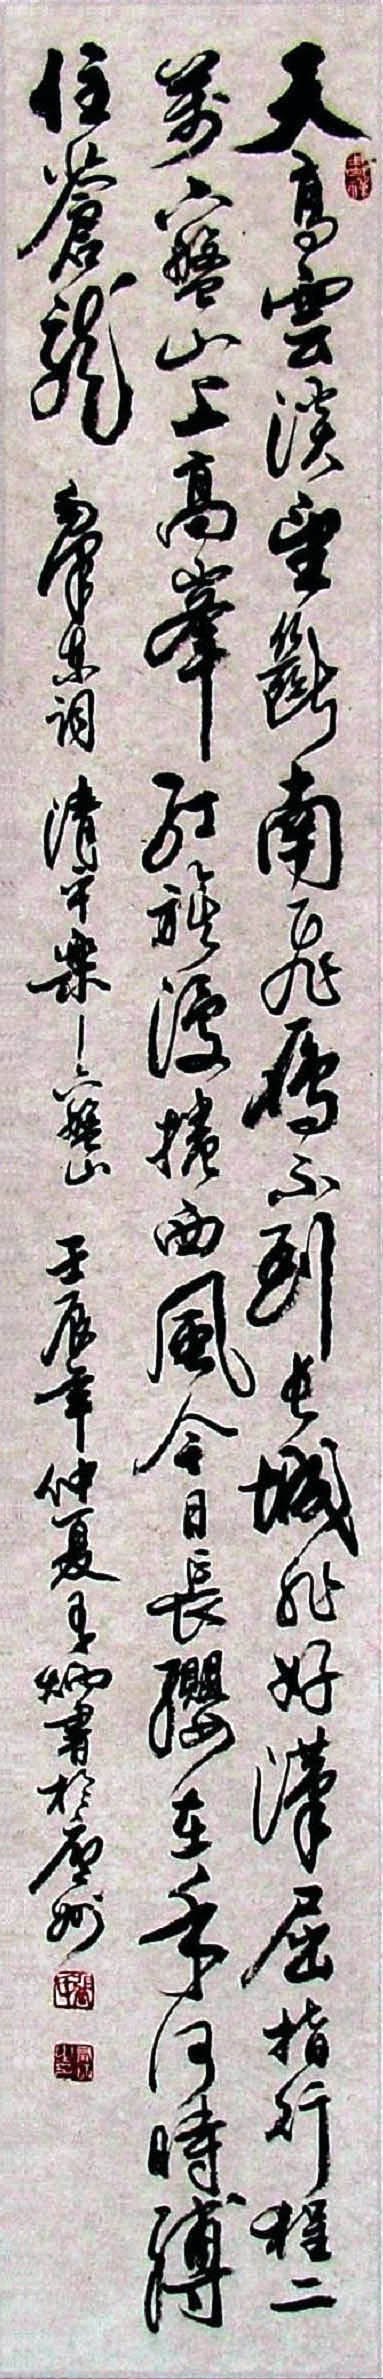 天高雲淡望斷南飛雁不到長城非好漢屈指行程二
萬六盤山上高峯紅旗漫捲西風今日長纓在手何時縛
住蒼龍 毛澤東詞 清平樂—六盤山 壬辰年仲夏月炳書於廬州